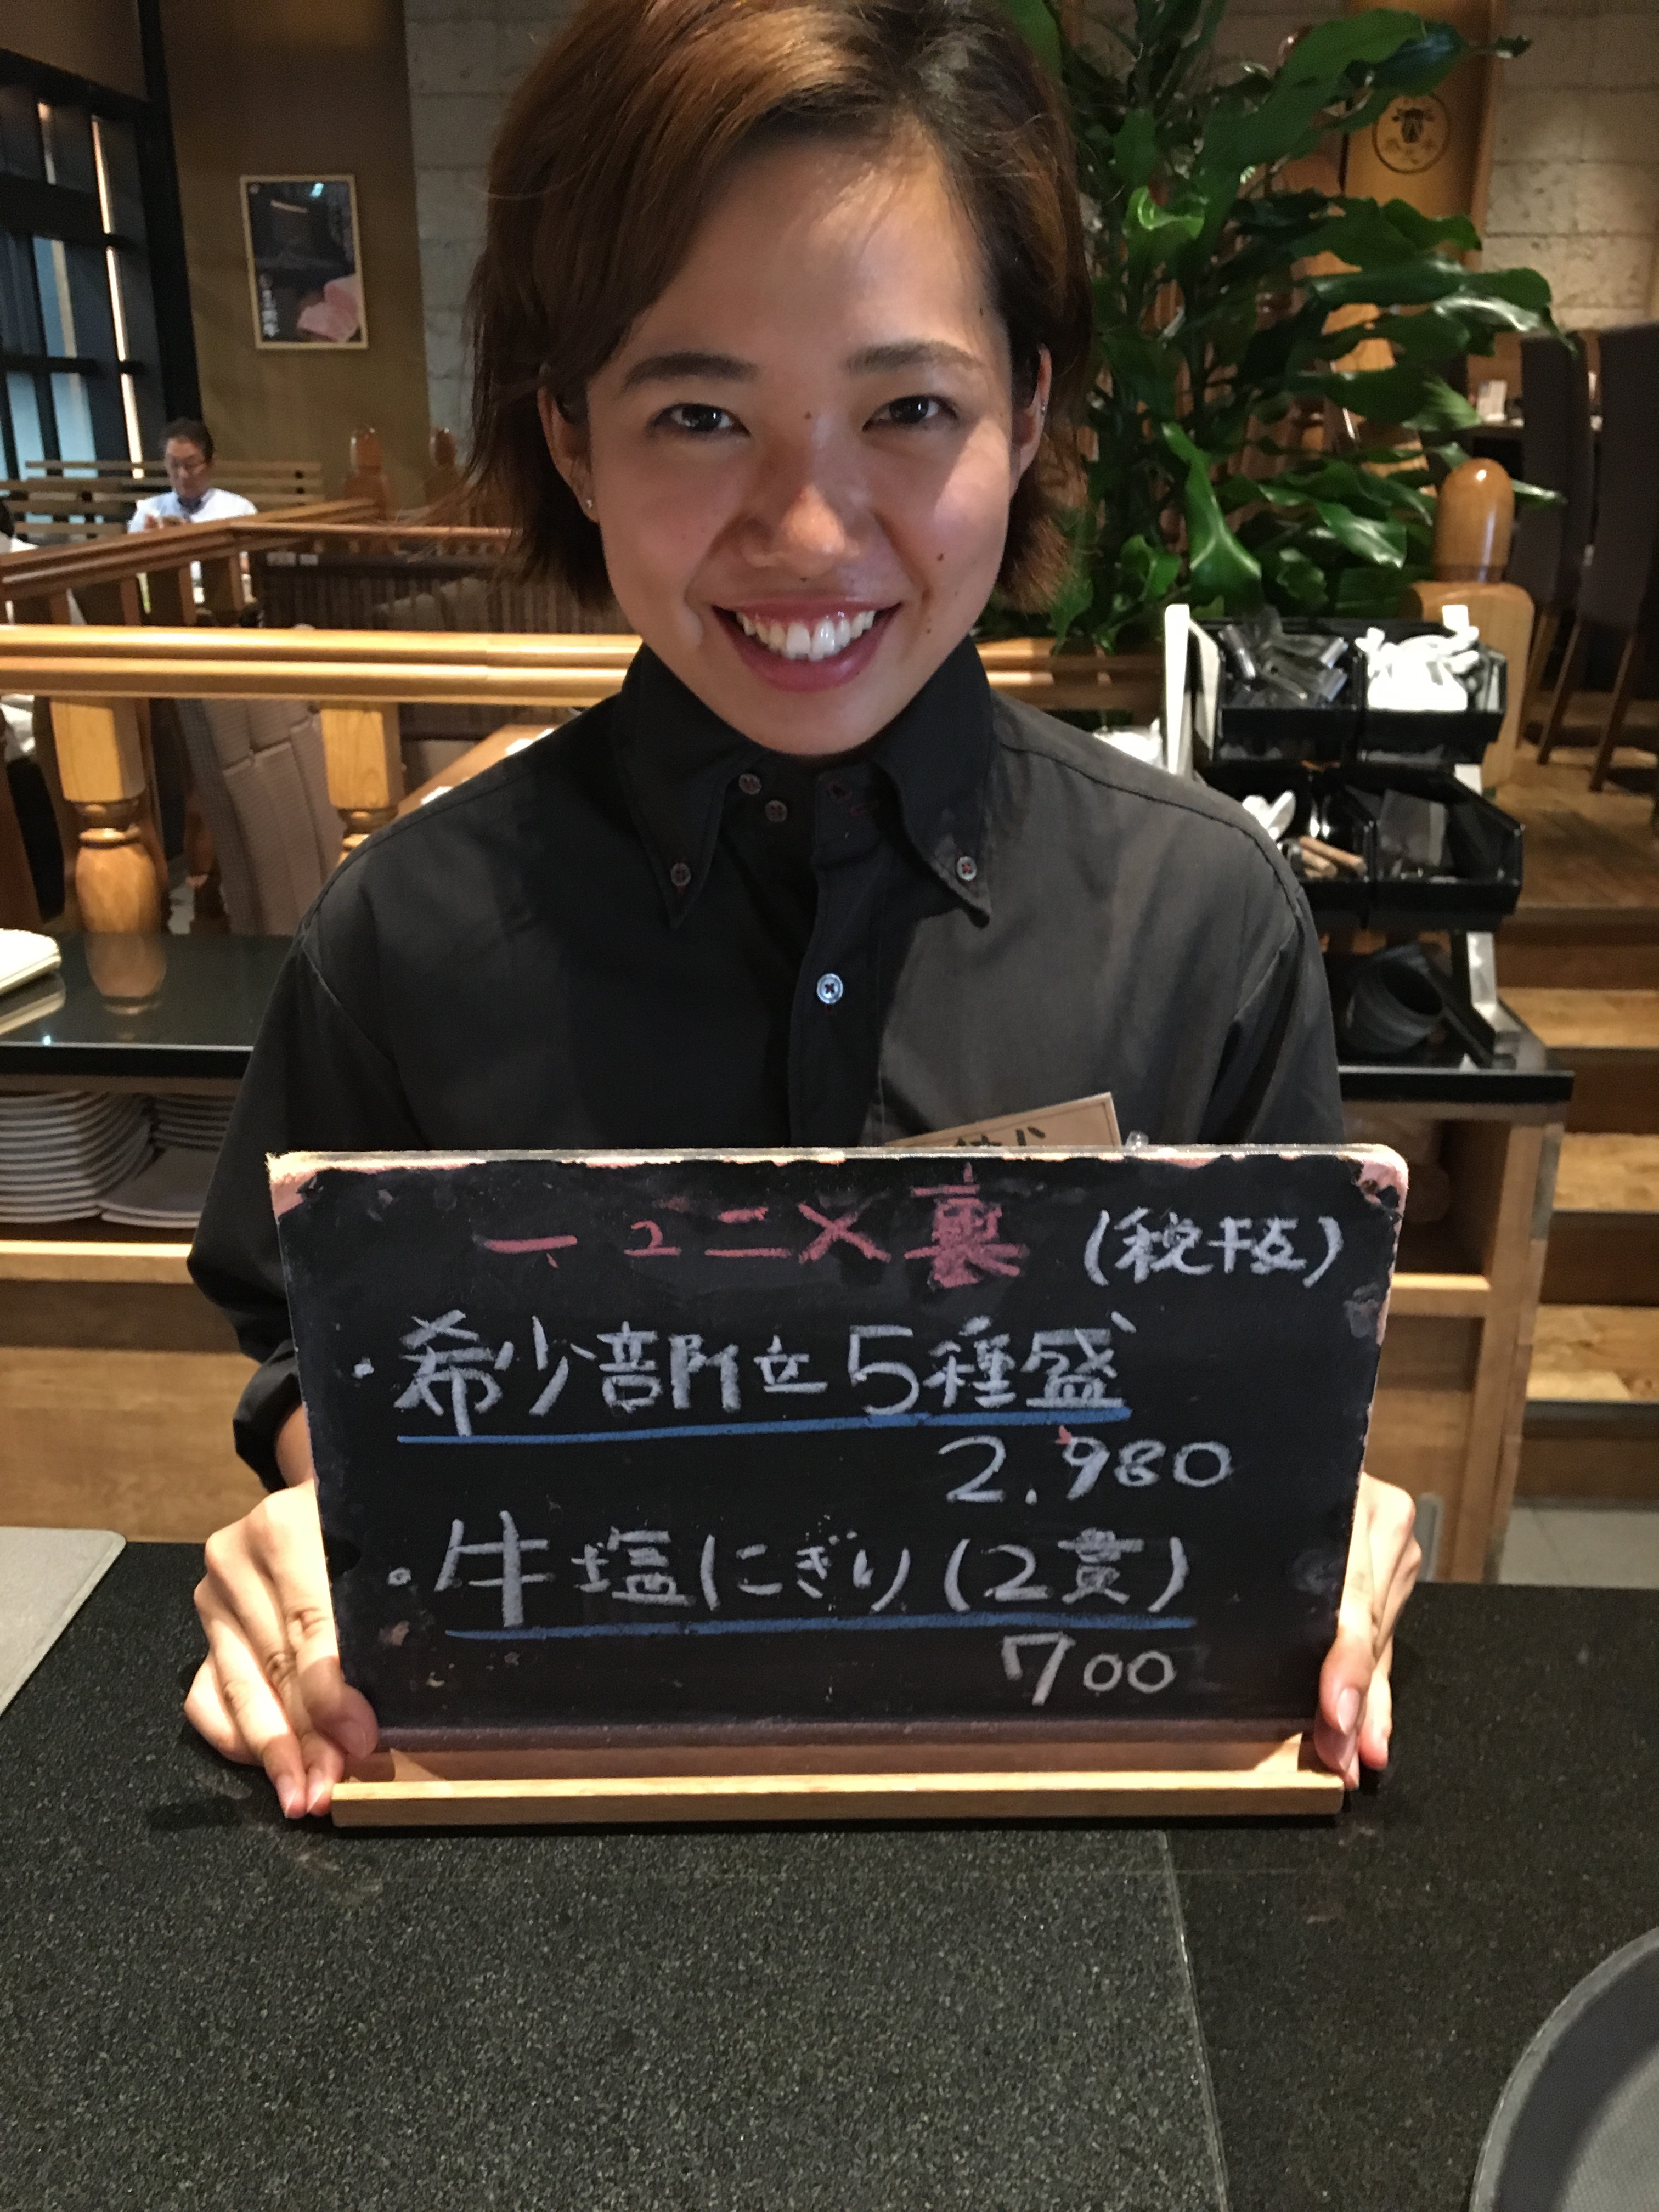 裏メニュー (税抜)
・希少部位5種盛
2.980
・牛塩にぎり(2貫)
700